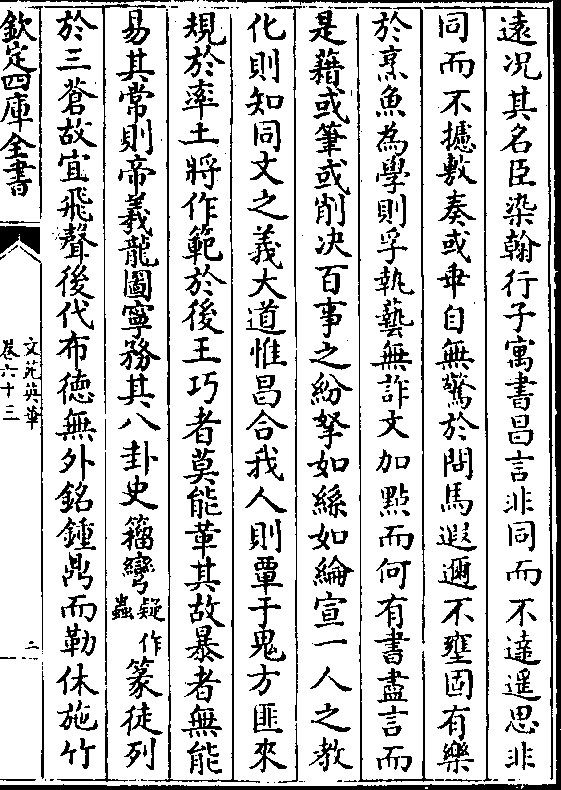 遠况其名臣染翰行子寓書昌言非同而不達遥思非
同而不攄敷奏或毋自無驚於問馬遐邇不壅固有樂
於烹魚為學則孚執藝無詐文加點而何有書盡言而
是藉或筆或削决百事之紛拏如絲如綸宣一人之教
化則知同文之義大道惟昌合我人則覃于鬼方匪來
規於率土將作範於後王巧者莫能革其故暴者無能
易其常則帝義龍圖寧務其八卦史籀彎疑作蟲篆徒列
於三蒼故宜飛聲後代布徳無外銘鍾鼎而勒休施竹
欽定四庫全書
文苑英華
卷六十三
二